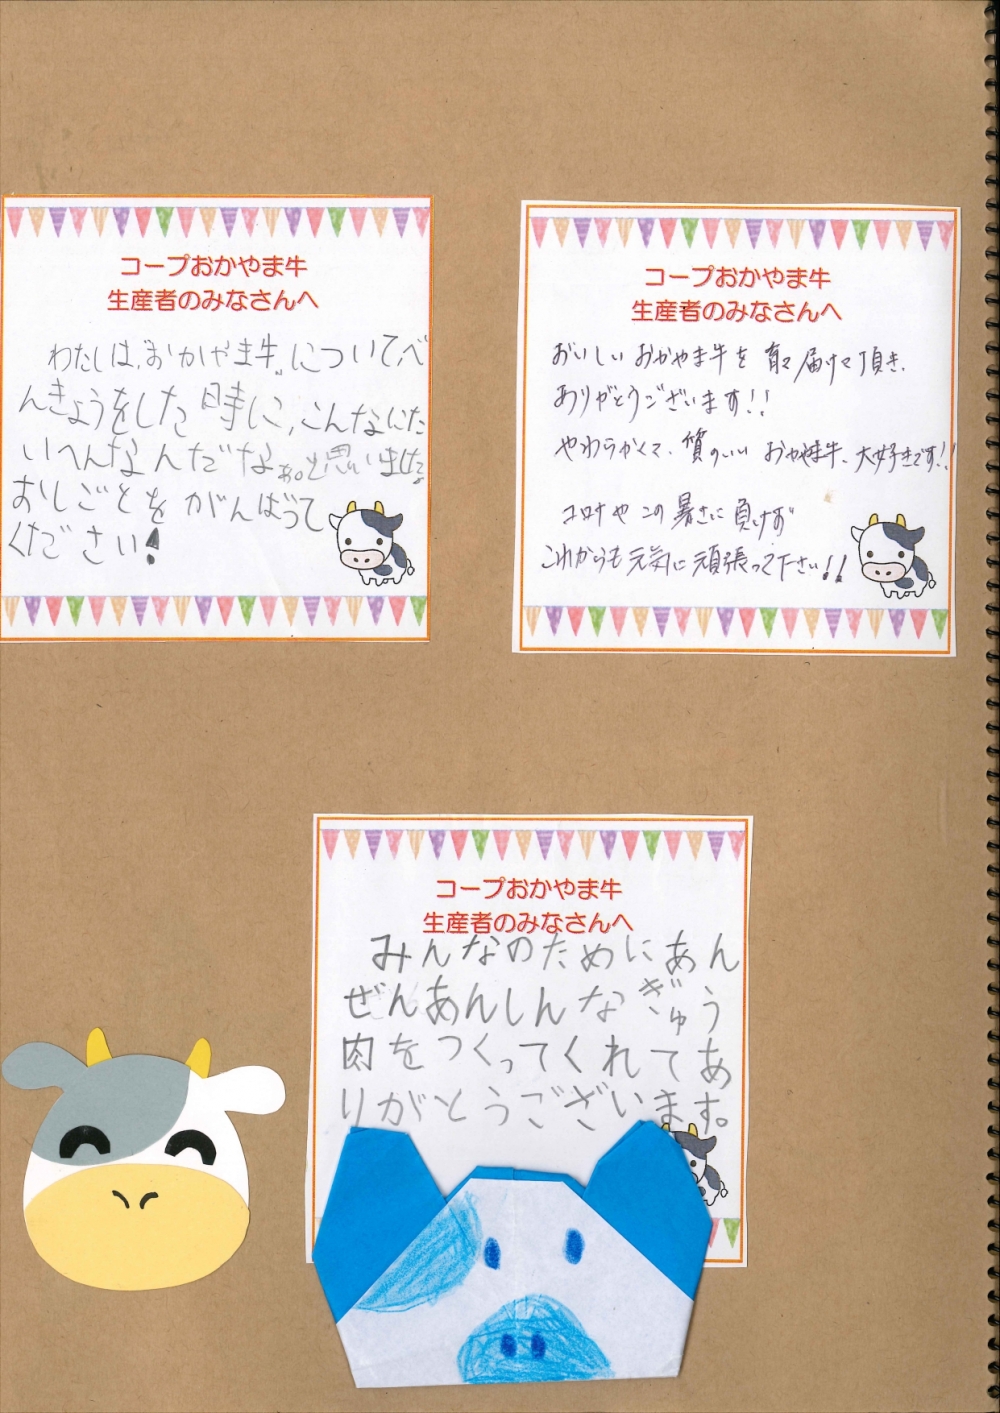 コープおかやま牛
生産者のみなさんへ
わたしは、"おかやま牛"についてべ
んきょうをした時に、こんなにた
いへんなんだなぁ。と思いました。
おしごとをがんばって
ください!
コープおかやま牛
生産者のみなさんへ
おいしい おかやま牛を 育て 届けて頂き、
ありがとうございます!!
やわらかくて、質のいい おかやま牛、大好きです!!
コロナや この 暑さに 負けず
これからも 元気に 頑張って下さい!!
コープおかやま牛
生産者のみなさんへ
みんなのためにあん
ぜんあんしんなぎゅう
肉をつくってくれてあ
りがとうございます。